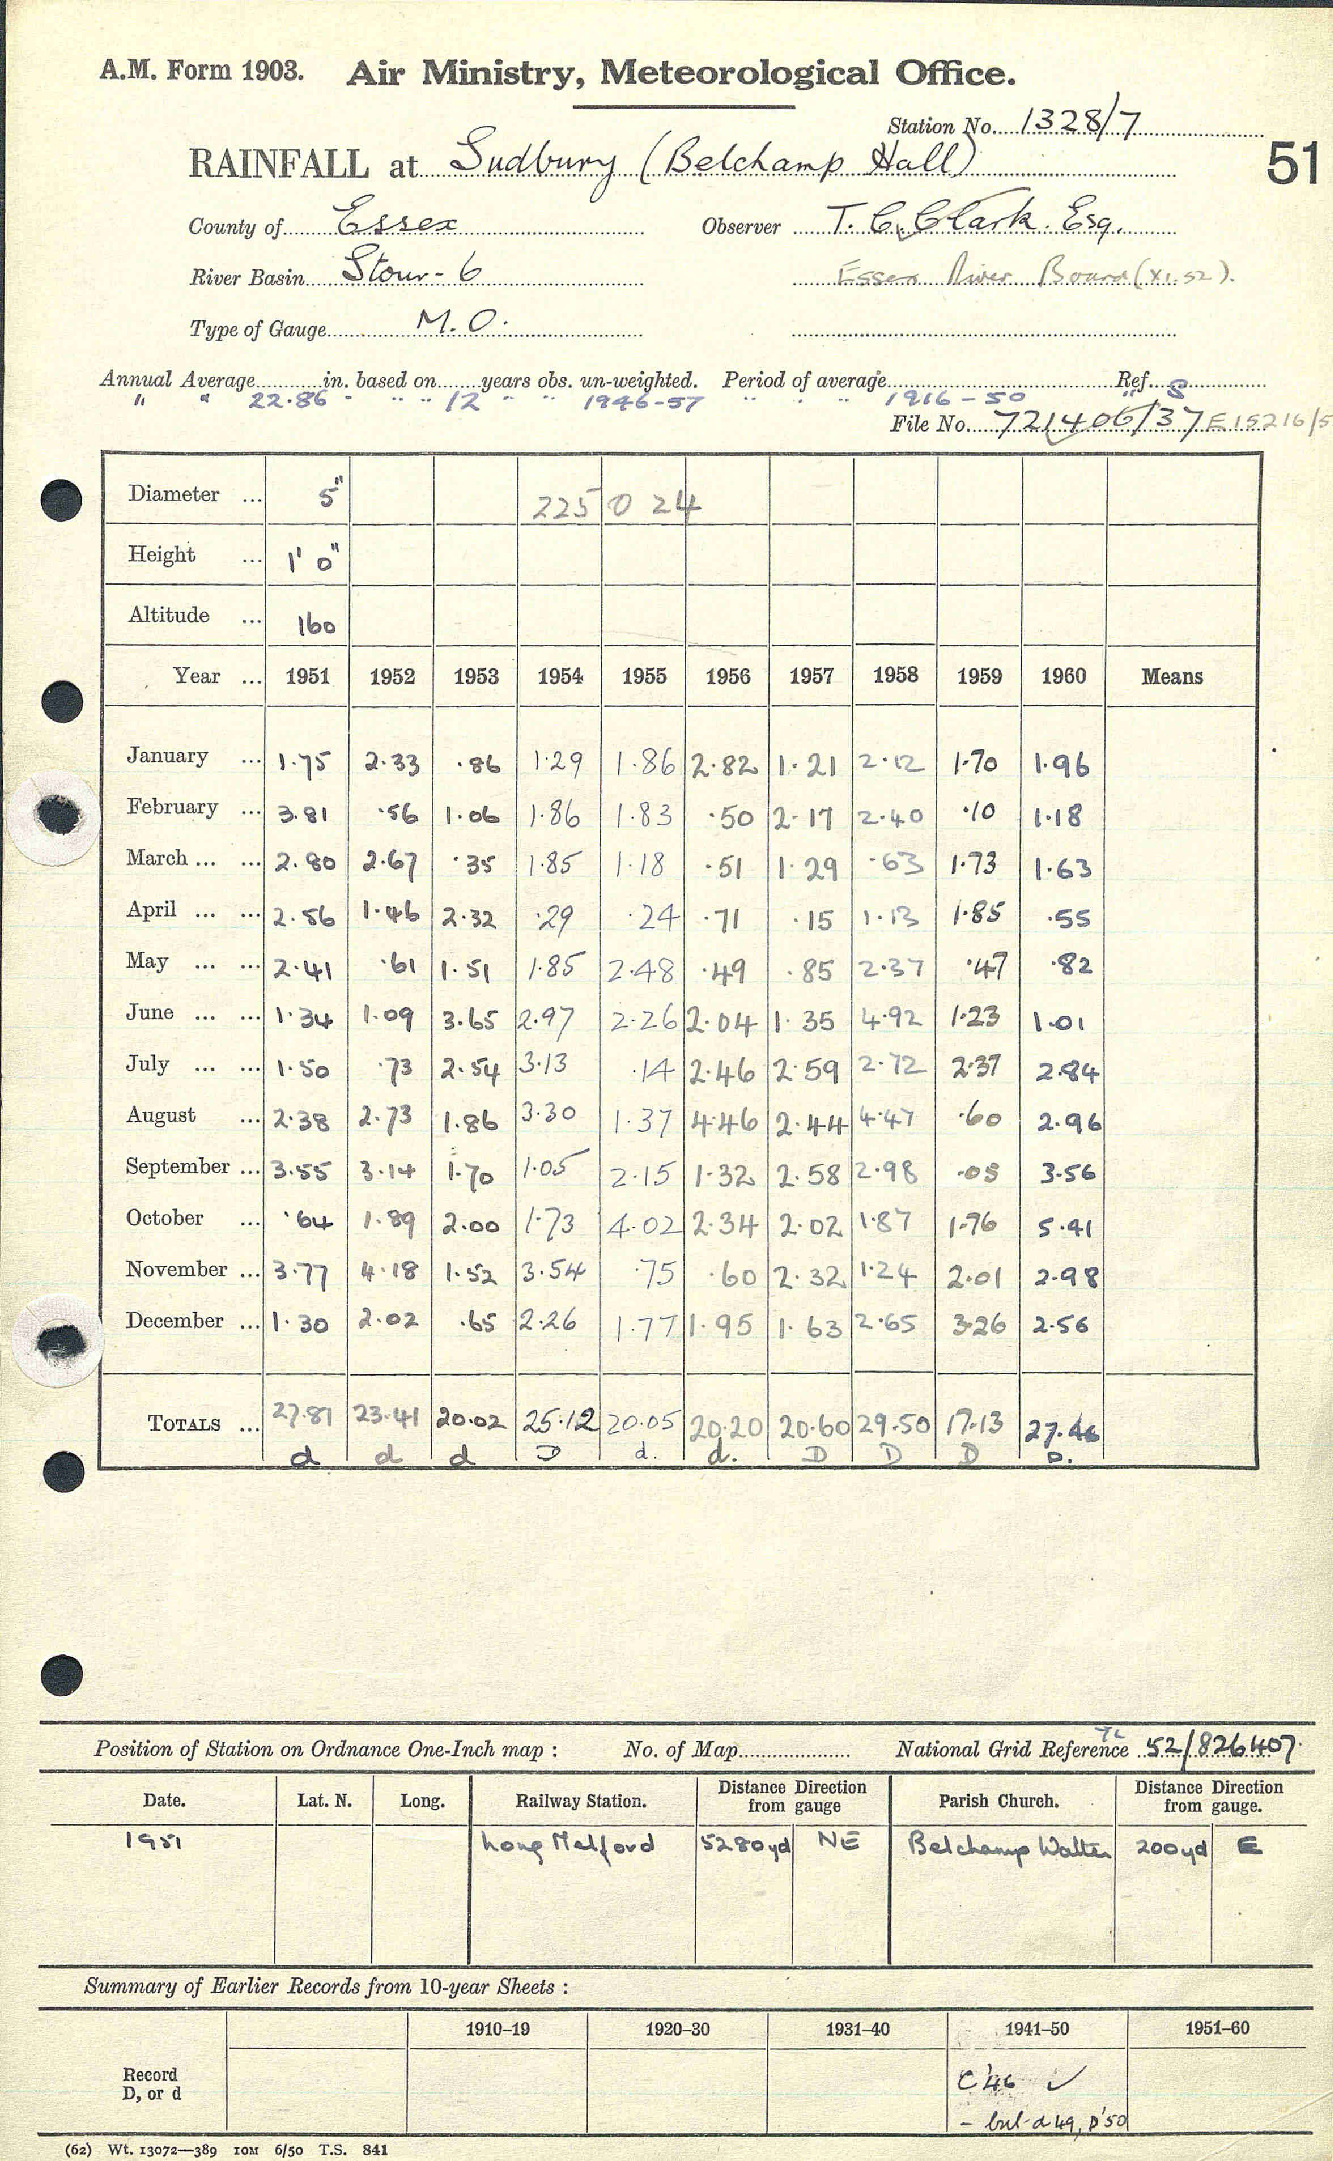 A.M. Form 1903. Air Ministry, Meteorological Office.
Station No. 1328/7
RAINFALL at Sudbury (Belchamp Hall)
51
County of Essex Observer T. C. Clark. Esq.
River Basin Stour - 6 Essex River Board (XI.52).
Type of Gauge M.O.
Annual Average in. based on years obs. un-weighted. Period of average Ref.
" " 22.86 " " " 12 " " 1946-57 " " " 1916-50 " S
File No. 721406/37 E15216/5
Diameter ... 5" 225024
Height ... 1' 0"
Altitude ... 160
Year ... 1951 1952 1953 1954 1955 1956 1957 1958 1959 1960 Means
January ... 1.75 2.33 .86 1.29 1.86 2.82 1.21 2.12 1.70 1.96
February ... 3.81 .56 1.06 1.86 1.83 .50 2.17 2.40 .10 1.18
March ... ... 2.80 2.67 .35 1.85 1.18 .51 1.29 .63 1.73 1.63
April ... ... 2.56 1.46 2.32 .29 .24 .71 .15 1.13 1.85 .55
May ... ... 2.41 .61 1.51 1.85 2.48 .49 .85 2.37 .47 .82
June ... ... 1.34 1.09 3.65 2.97 2.26 2.04 1.35 4.92 1.23 1.01
July ... ... 1.50 .73 2.54 3.13 .14 2.46 2.59 2.72 2.37 2.84
August ... 2.38 2.73 1.86 3.30 1.37 4.46 2.44 4.47 .60 2.96
September ... 3.55 3.14 1.70 1.05 2.15 1.32 2.58 2.98 .05 3.56
October ... .64 1.89 2.00 1.73 4.02 2.34 2.02 1.87 1.76 5.41
November ... 3.77 4.18 1.52 3.54 .75 .60 2.32 1.24 2.01 2.98
December ... 1.30 2.02 .65 2.26 1.77 1.95 1.63 2.65 3.26 2.56
TOTALS ... 27.81 23.41 20.02 25.12 20.05 20.20 20.60 29.50 17.13 27.46
d d d D d. d. D D D D.
Position of Station on Ordnance One-Inch map : No. of Map National Grid Reference TL 52/826407.
Date. Lat. N. Long. Railway Station. Distance Direction from gauge Parish Church. Distance Direction from gauge.
1951 Long Melford 5280yd NE Belchamp Walter 200yd E
Summary of Earlier Records from 10-year Sheets :
1910-19 1920-30 1931-40 1941-50 1951-60
Record D, or d C'46 ✓
- but d 49, D'50
(62) Wt. 13072—389 10M 6/50 T.S. 841